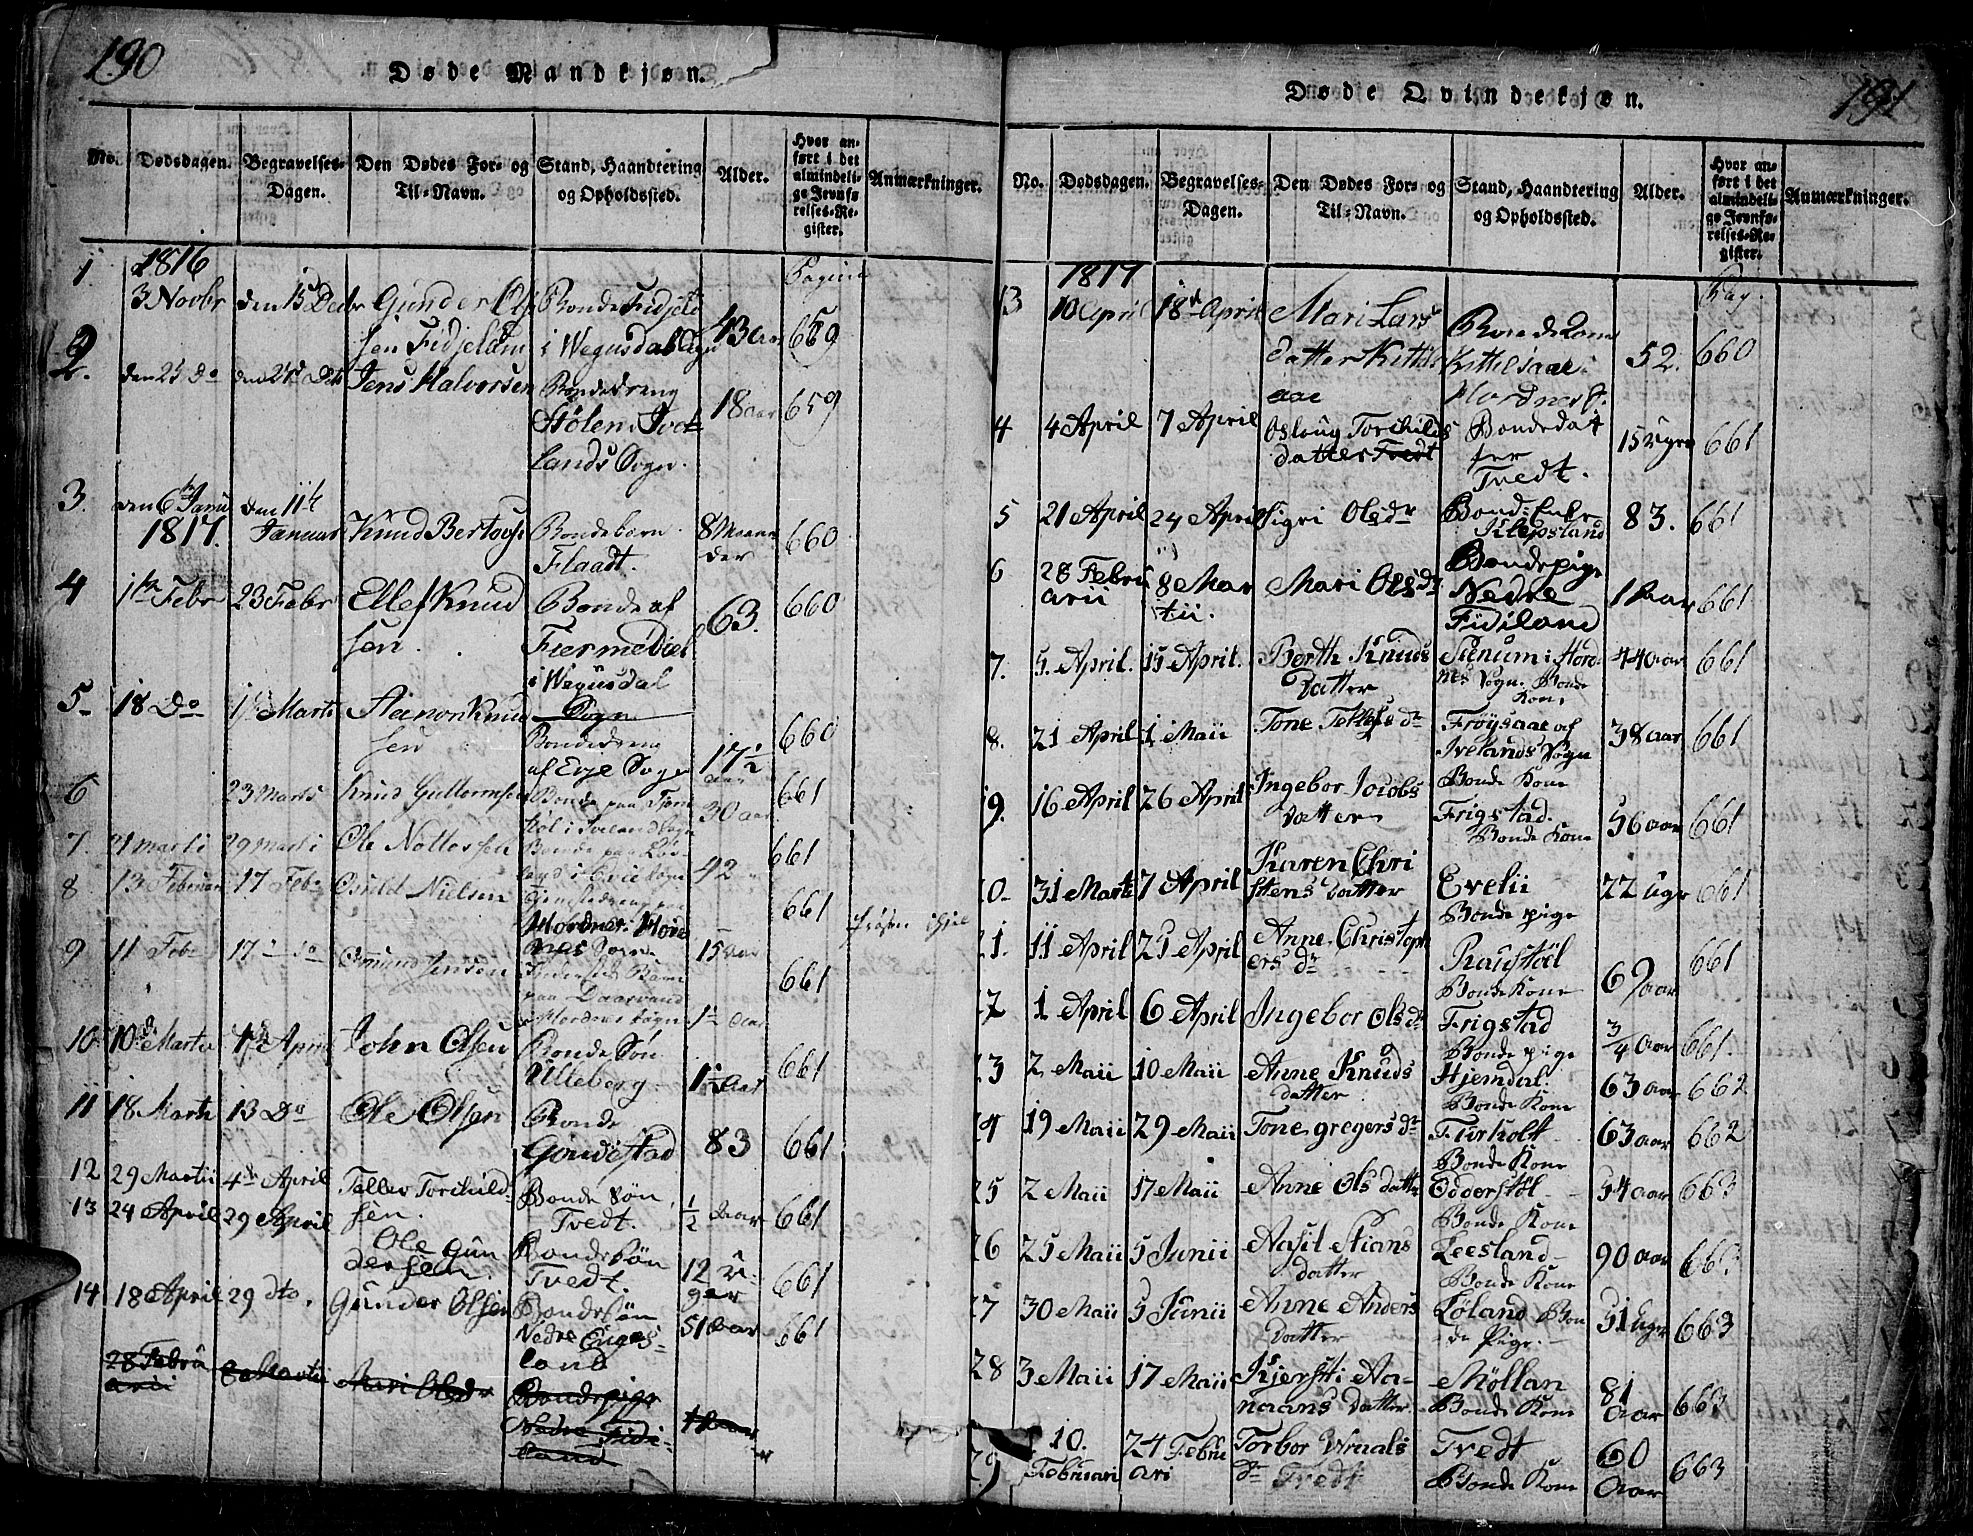 190
Døde Mandkjøn.
No. Dødsdagen. Begravelses-Dagen. Den Dødes For- og Til-Navn. Stand, Haandtering og Opholdssted. Alder. Hvor anført i det almindelige Jevnførelses-Register. Anmærkninger.
1 1816 3 Novbr den 15 Decbr Gunder Olsen Fidjeland Bonde Fidjeland i Wegusdal Sogn 43 Aar Pagina 659
2. den 25 Do Jens Halvorsen Bondedreng Hølen i Ivelands Sogn. 18 Aar 659
3. den 6te Janu 1817. den 11te Januar Knud Bertovs Bondebarn Flaadt. 8 Maaneder 660
4 1te Febr 23 Febr Ellef Knudsen Bonde af Fiermedal i Wegusdal Sogn 63. 660
5 18 Do 1 Marts Aanon Knudsen Bondedreng af Evje Sogn 17 1/2 Aar 660
6 23 Marts Knud Guttormsen Bonde paa i Iveland Sogn 30 aar 661
7 21 Marti 29 Marti Ole Nottosen Bonde paa i Evie Sogn 42 661
8 13 Februar 17 Feb. Nielsen Hordnes Hordnes Sogn 15 Aar 661 frøsen ihiel
9 11 Feb. 17 do Omund Jensen paa Daasvand Hordnes Sogn 1 Aar 661
10 10de Martii April John Olsen Bonde Søn Ulleberg 1 1/2 Aar 661
11 18 Marti 13 Do Ole Olsen Bonde Goudestad 83 661
12 29 Martii 4de April Tallev Torkildsen. Bonde Søn Tvedt. 1/2 Aar 661
13 24 April 29 April Ole Gundersen. Bonde Søn Tvedt. 12 Uger 661
14 18 April 29 dto. Gunder Olsen Bondesøn Nedre Engesland 51 Aar 661
28 Februarii 8 Martii Mari Olsdr Bondepige Nedre Fidiland 1 Aar
191
Døde Qvindekjøn.
No. Dødsdagen. Begravelses-Dagen. Den Dødes For- og Til-Navn. Stand, Haandtering og Opholdssted. Alder. Hvor anført i det almindelige Jevnførelses-Register. Anmærkninger.
13 1817 10 April 18de April Mari Larsdatter Kittilsaae Bondekone Kittelsaae i Hordnes S. 52. Pag. 660
4 4 April 7 April Oslaug Torkildsdatter Tvedt Bondedatter Tvedt. 15 Uger 661
5 21 April 24 April Sigri Olsdr Bond: Enke Klepsland 83. 661
6 28 Februarii 8 Martii. Mari Olsdr Bondepige Nedre Fidiland 1 Aar 661
7. 5. April. 15 April. Berth Knudsdatter i Hordnes Sogn. Bonde Kone 44 aar 661
8. 21 April 1 Maii Tone Tellefsdr Frøysaae af Ivelands Sogn Bonde Kone 38 aar 661
19. 16 April 26 April Ingebor Jacobsdatter Frigstad. Bonde Kone 56 aar 661
20. 31 Marti 7 April Karen Christensdatter Evelii Bonde pige 22 Uger 661
21. 11 April 25 April Anne Christophersdr Raustøel Bonde Kone 69 aar 661
22 1 April 6 April Ingebor Olsdr Frigstad Bonde pige 3/4 Aar 661.
23 2 Maii 10 Maii Anne Knudsdatter Hjemdal. Bonde Kone 63 aar 662
24 19 Maii 29 Maii Tone gregersdr Bonde Kone 63 aar 662
25 2 Maii 17 Maii Anne Olsdatter Odderstøl Bonde Kone 54 aar 663
26 25 Maii 5 Junii Aasil Stiansdatter Leesland Bonde Kone 90 aar 663
27 30 Maii 5 Junii Anne Andersdatter Løland Bonde Pige. 51 Uger 663
28 3 Maii 17 Maii Kjersti Aanaansdatter Møllan Bonde Kone 81 Aar 663
29 10. Februari 24 Februari Torbor Vraalsdr Tvedt Tvedt Bonde Kone 60 Aar 663